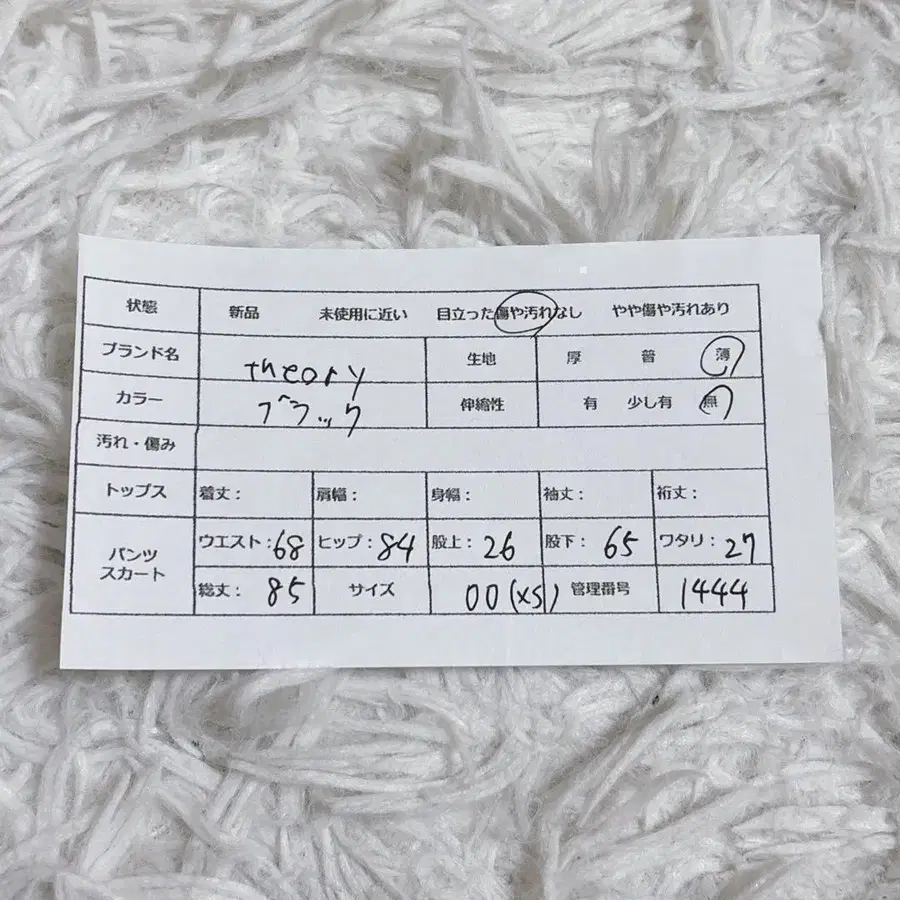 状態 新品 未使用に近い 目立った傷や汚れなし やや傷や汚れあり
ブランド名 theory 生地 厚 普 薄
カラー ブラック 伸縮性 有 少し有 無
汚れ・傷み
トップス 着丈: 肩幅: 身幅: 袖丈: 裄丈:
パンツ スカート ウエスト:68 ヒップ:84 股上:26 股下:65 ワタリ:27
総丈:85 サイズ 00(XS) 管理番号 1444